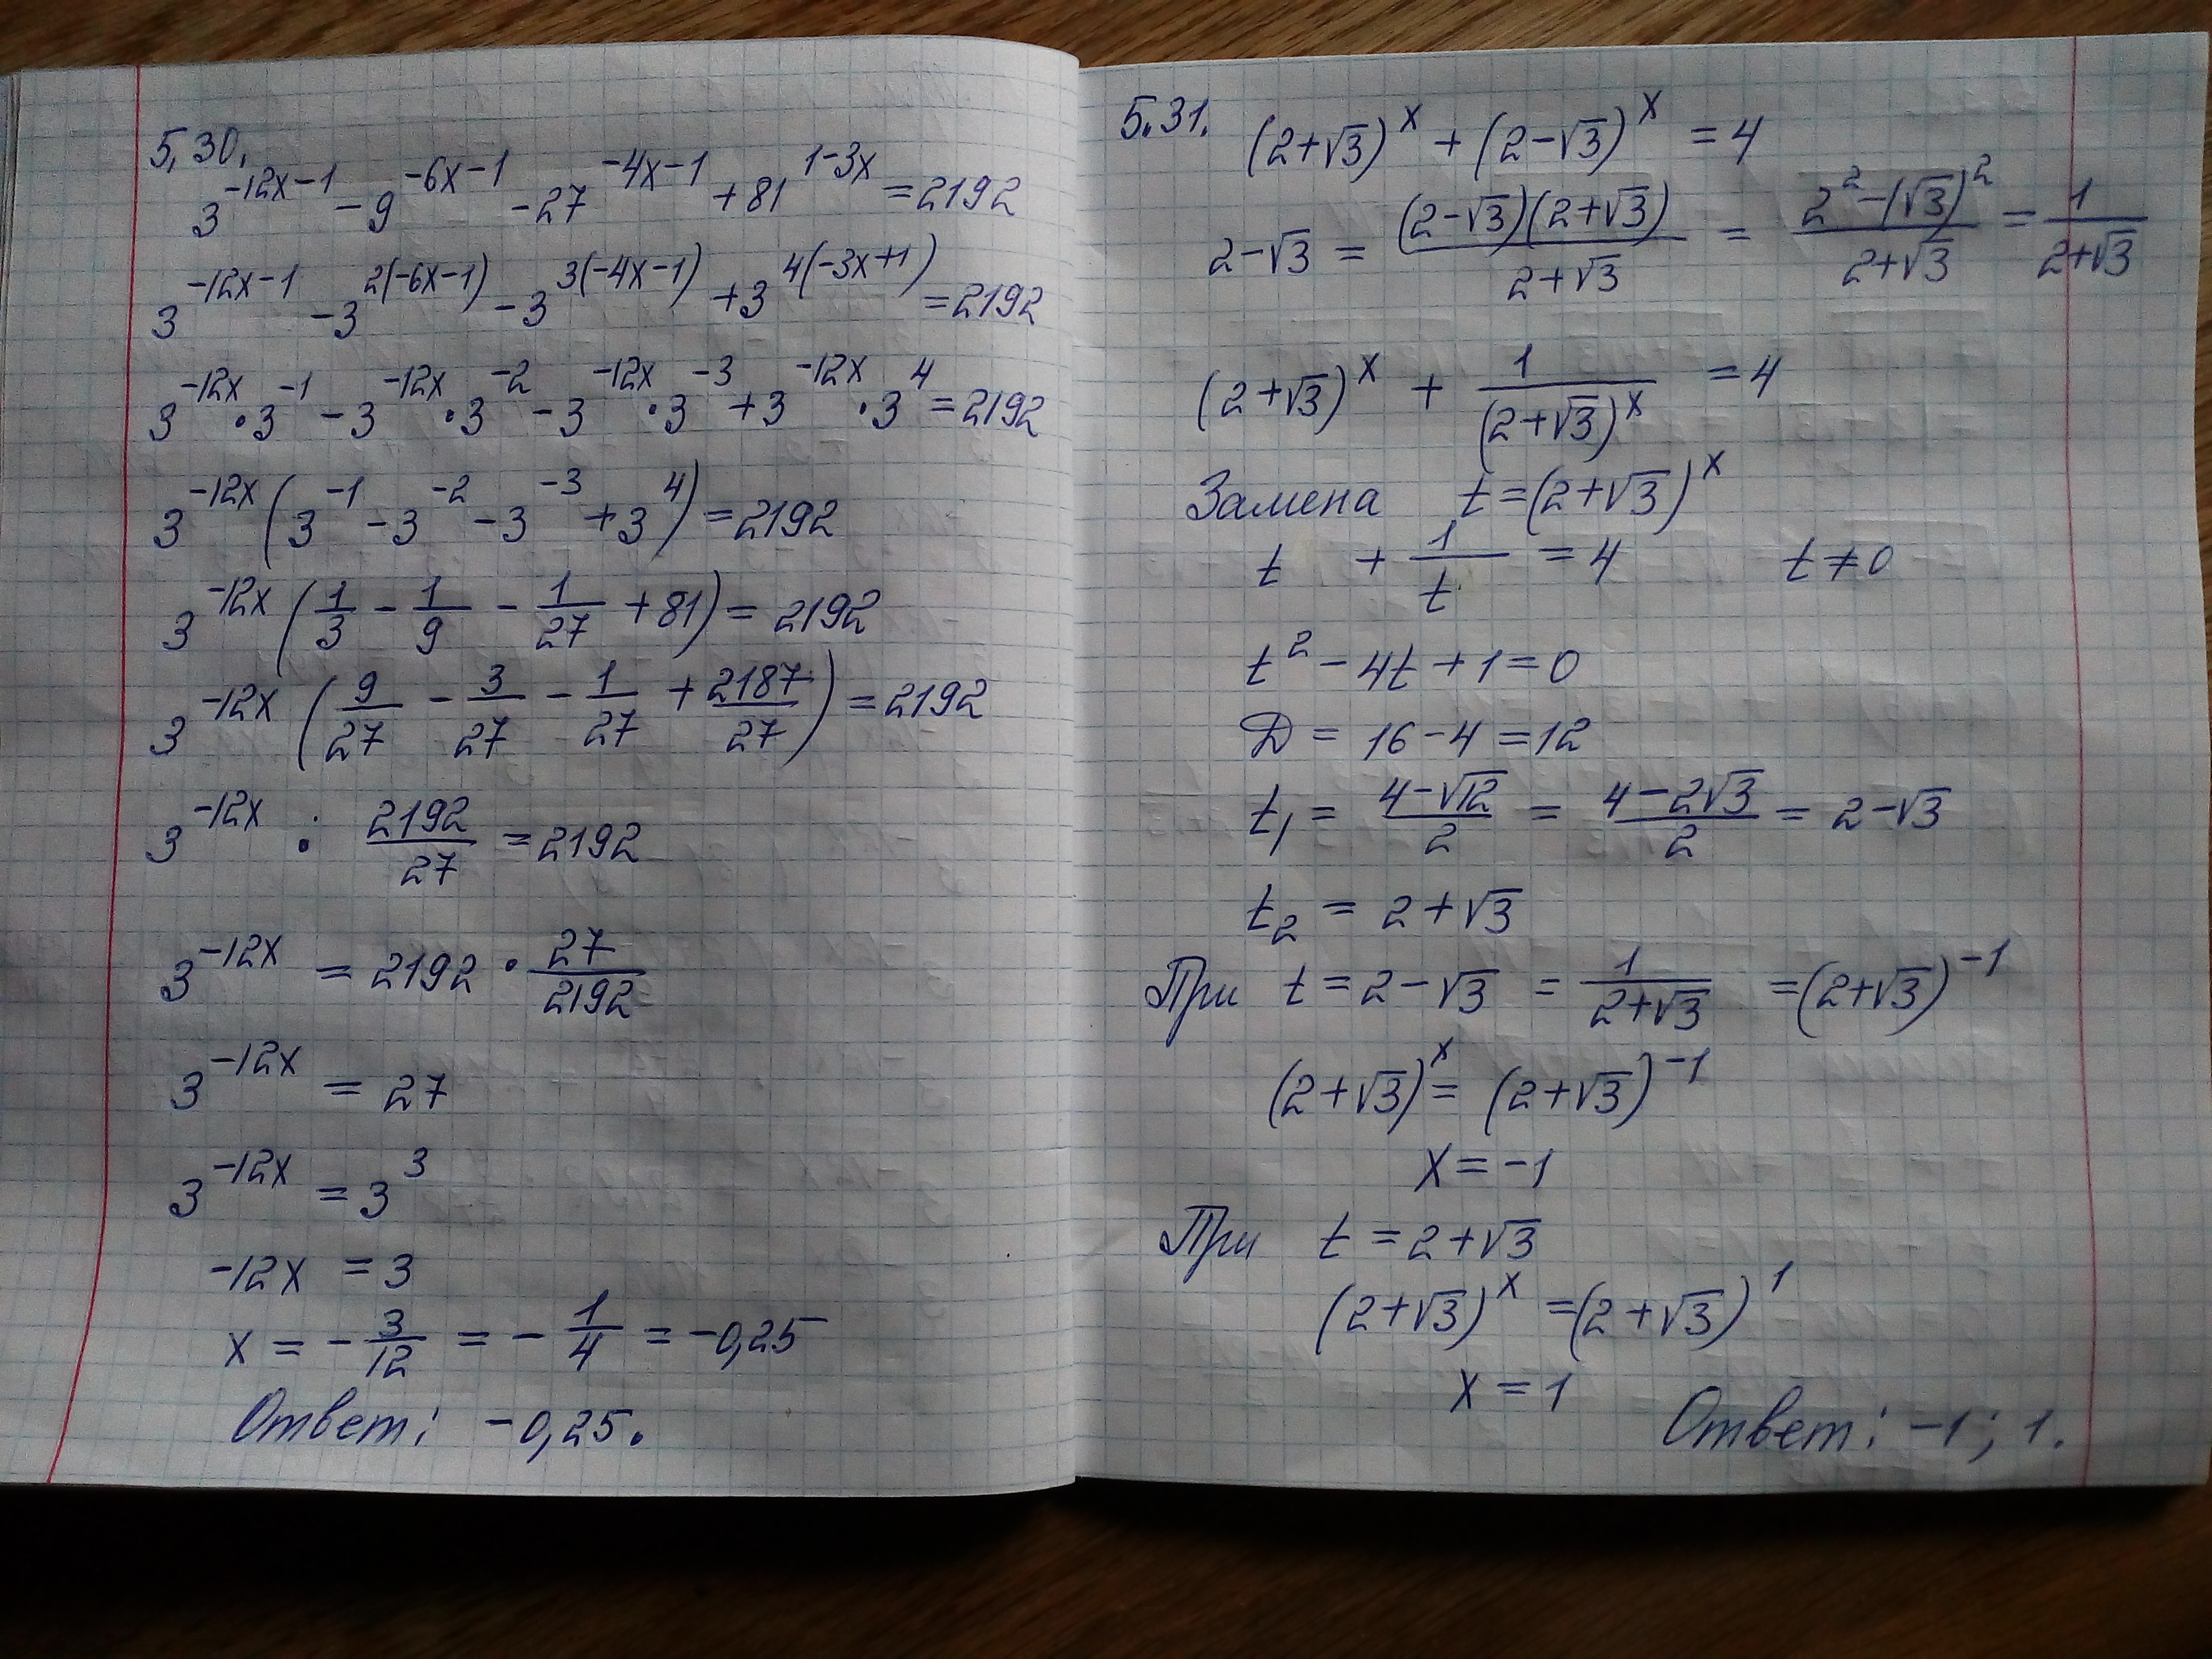 5,30.
3^(-12x-1) - 9^(-6x-1) - 27^(-4x-1) + 81^(1-3x) = 2192
3^(-12x-1) - 3^(2(-6x-1)) - 3^(3(-4x-1)) + 3^(4(-3x+1)) = 2192
3^(-12x) · 3^(-1) - 3^(-12x) · 3^(-2) - 3^(-12x) · 3^(-3) + 3^(-12x) · 3^4 = 2192
3^(-12x) (3^(-1) - 3^(-2) - 3^(-3) + 3^4) = 2192
3^(-12x) (1/3 - 1/9 - 1/27 + 81) = 2192
3^(-12x) (9/27 - 3/27 - 1/27 + 2187/27) = 2192
3^(-12x) : 2192/27 = 2192
3^(-12x) = 2192 · 27/2192
3^(-12x) = 27
3^(-12x) = 3^3
-12x = 3
x = -3/12 = -1/4 = -0,25
Ответ: -0,25.
5.31. (2+√3)^x + (2-√3)^x = 4
2-√3 = (2-√3)(2+√3)/(2+√3) = (2^2-(√3)^2)/(2+√3) = 1/(2+√3)
(2+√3)^x + 1/(2+√3)^x = 4
Замена t=(2+√3)^x
t + 1/t = 4 t≠0
t^2 - 4t + 1 = 0
Д = 16-4 = 12
t₁ = (4-√12)/2 = (4-2√3)/2 = 2-√3
t₂ = 2+√3
При t = 2-√3 = 1/(2+√3) = (2+√3)^(-1)
(2+√3)^x = (2+√3)^(-1)
x = -1
При t = 2+√3
(2+√3)^x = (2+√3)^1
x = 1
Ответ: -1; 1.